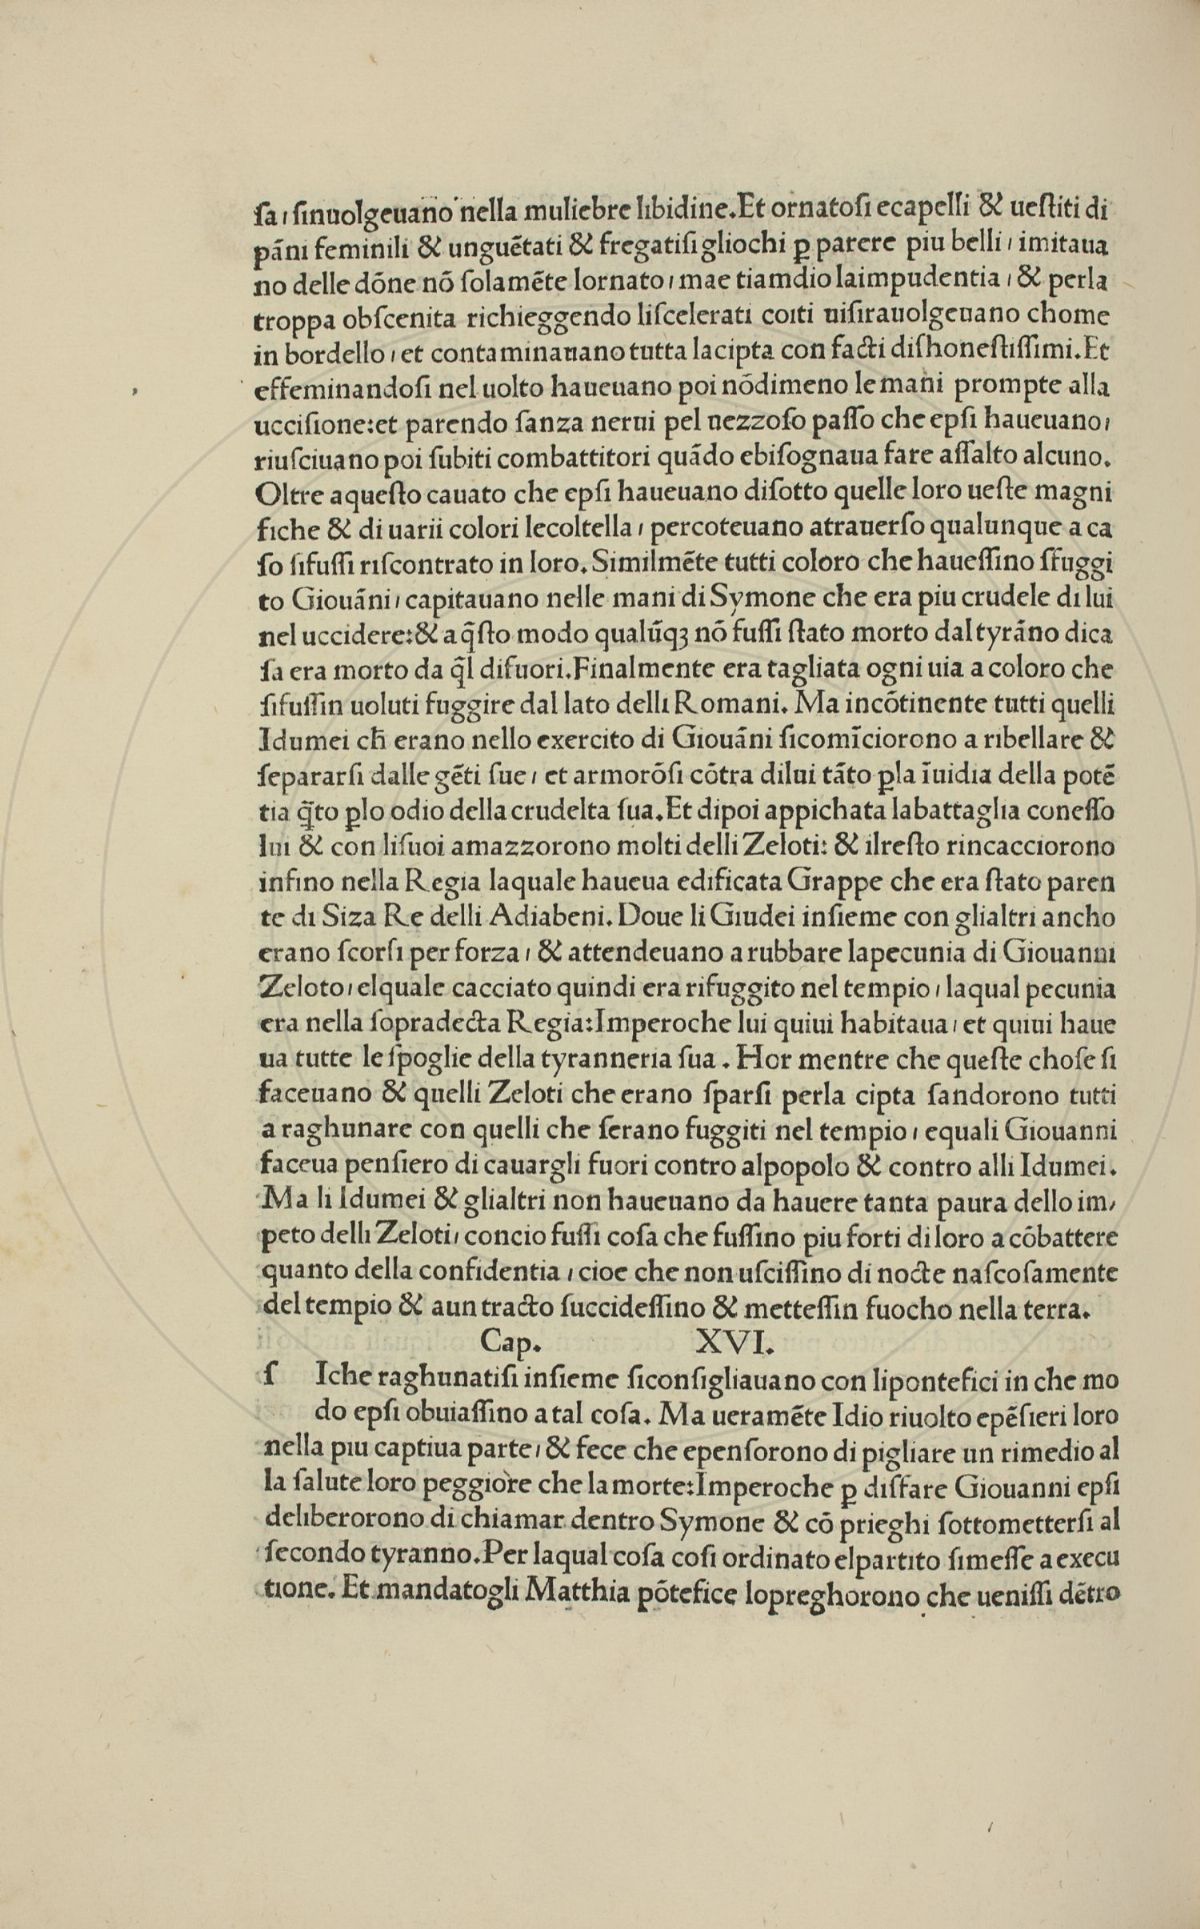 ſa, ſinuolgeuano nella muliebre libidine.Et ornatoſi ecapelli & ueſtiti di
pãni feminili & unguẽtati & fregatiſi gliochi ꝑ parere piu belli, imitaua
no delle dõne nõ ſolamẽte lornato, mae tiamdio laimpudentia, & perla
troppa obſcenita richieggendo liſcelerati coiti uiſirauolgeuano chome
in bordello, et contaminauano tutta lacipta con facti diſhoneſtiſſimi.Et
effeminandoſi nel uolto haueuano poi nõdimeno le mani prompte alla
ucciſione:et parendo ſanza nerui pel uezzoſo paſſo che epſi haueuano,
riuſciuano poi ſubiti combattitori quãdo ebiſognaua fare aſſalto alcuno.
Oltre aqueſto cauato che epſi haueuano diſotto quelle loro ueſte magni
fiche & di uarii colori lecoltella, percoteuano atrauerſo qualunque a ca
ſo ſifuſſi riſcontrato in loro. Similmẽte tutti coloro che haueſſino ſfuggi
to Giouãni, capitauano nelle mani di Symone che era piu crudele di lui
nel uccidere:& a q̃ſto modo qualũqꝫ nõ fuſſi ſtato morto dal tyrãno dica
ſa era morto da q̃l difuori.Finalmente era tagliata ogni uia a coloro che
ſifuſſin uoluti fuggire dal lato delli Romani. Ma incõtinente tutti quelli
Idumei ch̃ erano nello exercito di Giouãni ſicomĩciorono a ribellare &
ſepararſi dalle gẽti ſue, et armorõſi cõtra dilui tãto ꝑla ĩuidia della potẽ
tia q̃to ꝑlo odio della crudelta ſua.Et dipoi appichata labattaglia coneſſo
lui & con liſuoi amazzorono molti delli Zeloti: & ilreſto rincacciorono
infino nella Regia laquale haueua edificata Grappe che era ſtato paren
te di Siza Re delli Adiabeni. Doue li Giudei inſieme con glialtri ancho
erano ſcorſi per forza, & attendeuano a rubbare lapecunia di Giouanni
Zeloto, elquale cacciato quindi era rifuggito nel tempio, laqual pecunia
era nella ſopradecta Regia:Imperoche lui quiui habitaua, et quiui haue
ua tutte le ſpoglie della tyranneria ſua . Hor mentre che queſte choſe ſi
faceuano & quelli Zeloti che erano ſparſi perla cipta ſandorono tutti
a raghunare con quelli che ſerano fuggiti nel tempio, equali Giouanni
faceua penſiero di cauargli fuori contro alpopolo & contro alli Idumei.
Ma li Idumei & glialtri non haueuano da hauere tanta paura dello im,
peto delli Zeloti, concio fuſſi coſa che fuſſino piu forti di loro a cõbattere
quanto della confidentia, cioe che non uſciſſino di nocte naſcoſamente
del tempio & aun tracto ſuccideſſino & metteſſin fuocho nella terra.
Cap. XVI.
ſ Iche raghunatiſi inſieme ſiconſigliauano con lipontefici in che mo
do epſi obuiaſſino a tal coſa. Ma ueramẽte Idio riuolto epẽſieri loro
nella piu captiua parte, & fece che epenſorono di pigliare un rimedio al
la ſalute loro peggiore che la morte:Imperoche ꝑ diſfare Giouanni epſi
deliberorono di chiamar dentro Symone & cõ prieghi ſottometterſi al
ſecondo tyranno.Per laqual coſa coſi ordinato elpartito ſimeſſe a execu
tione. Et mandatogli Matthia põtefice lopreghorono che ueniſſi dẽtro